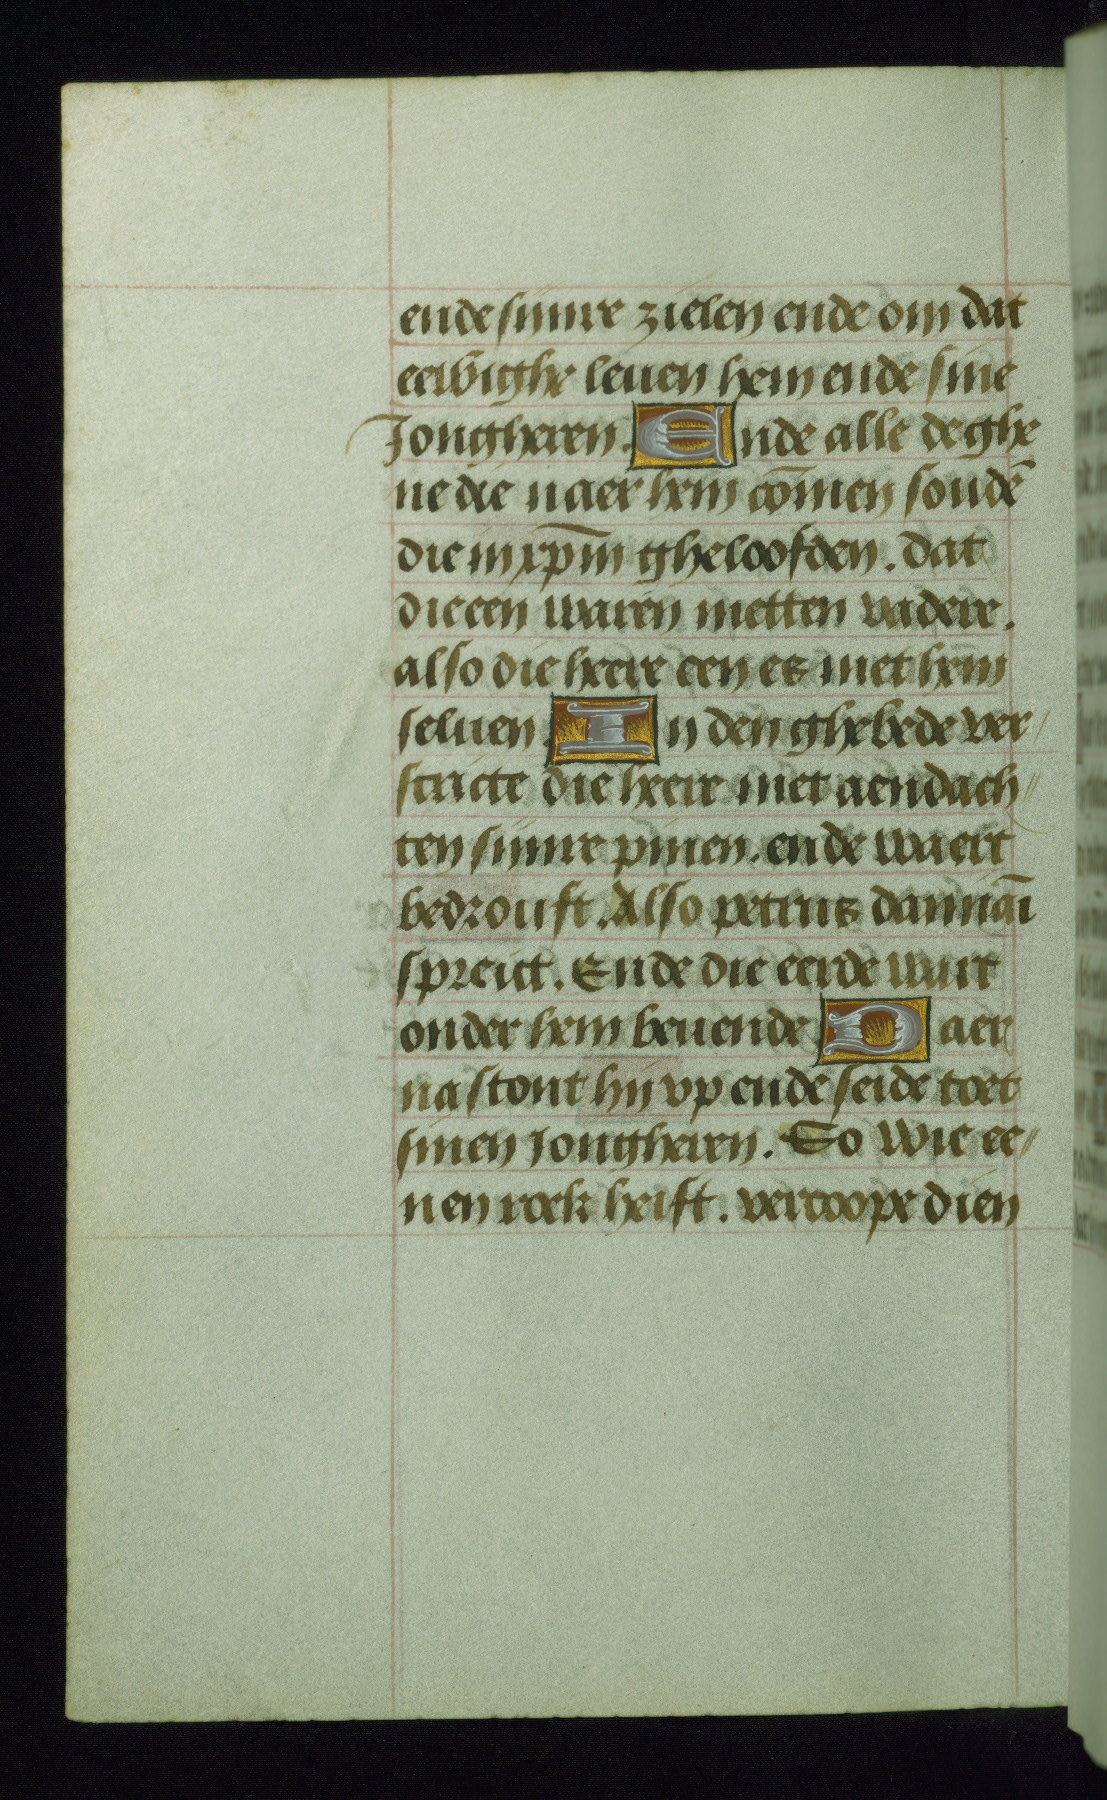 ende sijnre zielen ende om dat
eewighe leuen hem ende sine
Jongheren. Ende alle deghe
ne die naer hem com̄en soudē
die in xp̄m gheloofden. dat
die een waren metten vadere.
also die heere een es met hem
seluen. In den ghebede ver/
stricte die heere met aendach//
ten sijnre pinen. ende waert
bedrouft. Also petrus damiaī
spreict. Ende die eerde wart
onder hem beuende Daer
na stont hij vp ende seide toet
sinen Jongheren. So wie ee//
nen rock heift. vercoope dien